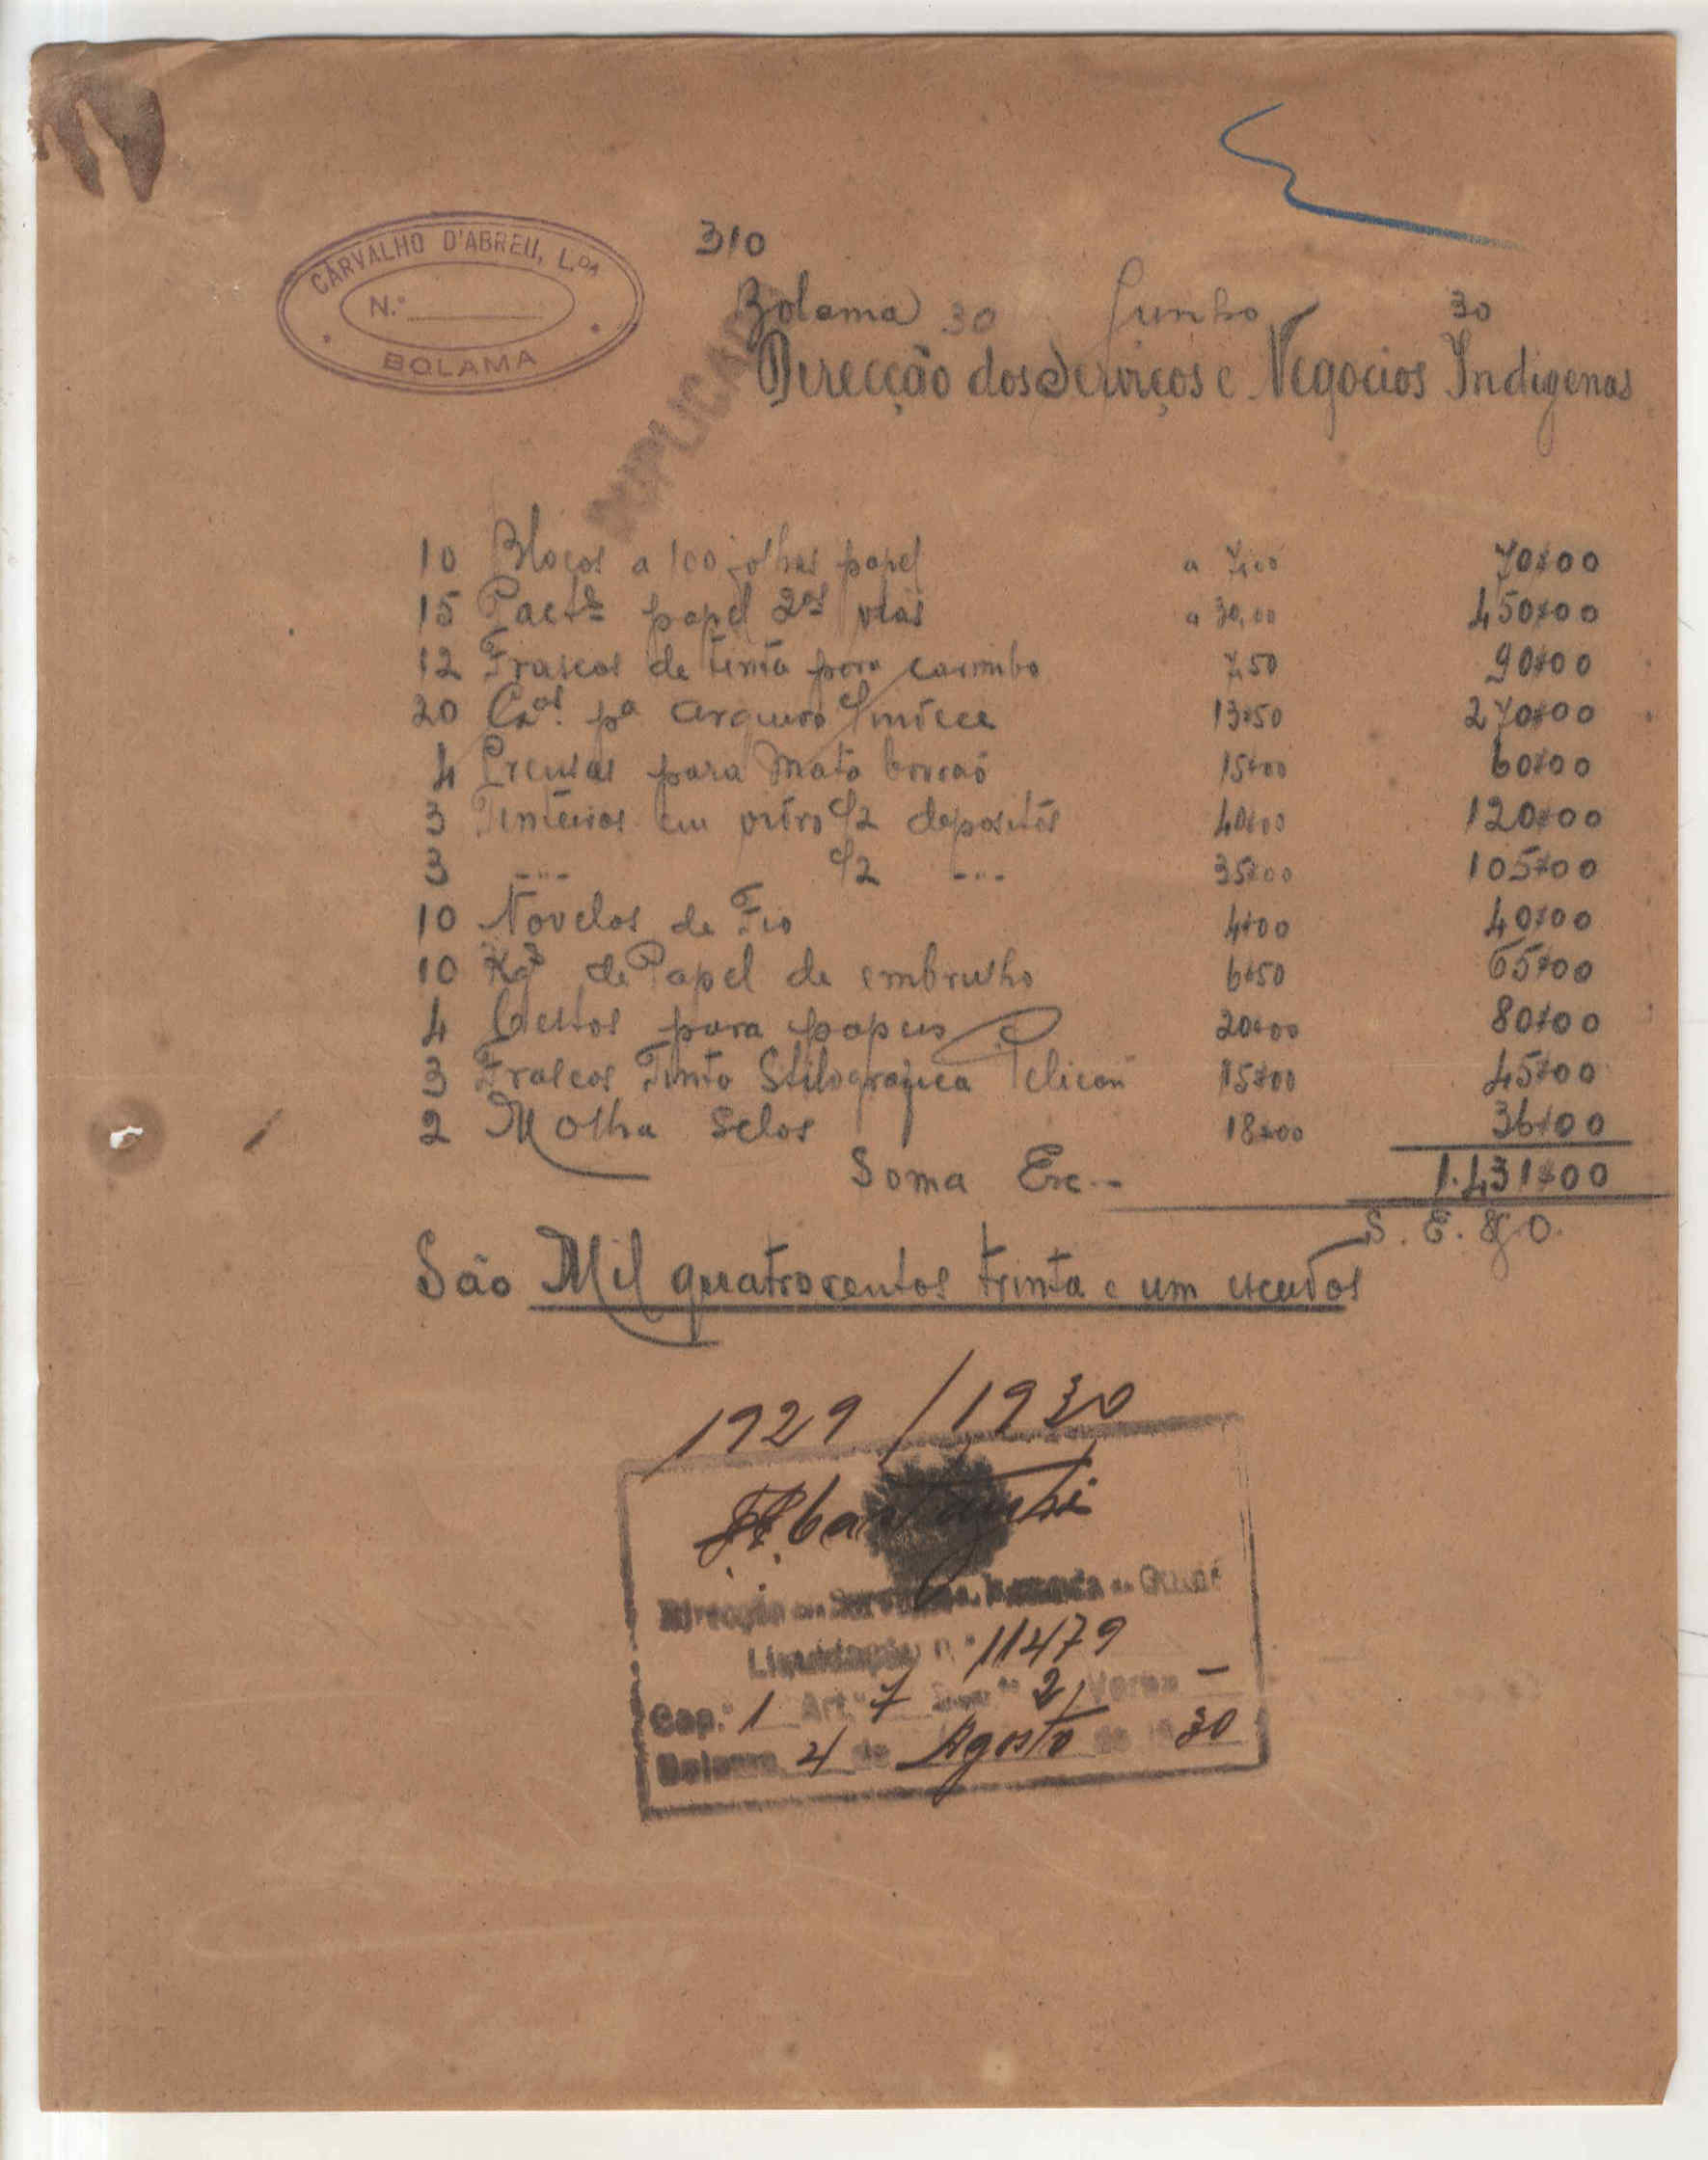 CARVALHO D'ABREU, L.DA
N.º
BOLAMA
310
Bolama 30 Junho 30
DUPLICADO
Direcção dos Serviços e Negocios Indigenas
10 Blocos a 100 folhas papel a 7,00 70$00
15 Pact.s papel 2as vias a 30,00 450$00
12 Frascos de tinta para carimbo 7,50 90$00
20 Cx.as pa arquivo c/ indece 13$50 270$00
4 Prensas para mata borrão 15$00 60$00
3 Tinteiros em vidro c/2 depositos 40$00 120$00
3 -"- c/2 -"- 35$00 105$00
10 Novelos de Fio 4$00 40$00
10 Kgs de Papel de embrulho 6$50 65$00
4 Cestos para papeis 20$00 80$00
3 Frascos Tinta Stilografica Pelican 15$00 45$00
2 Molha Selos 18$00 36$00
Soma Esc.-- 1.431$00
S. E. & O.
São Mil quatrocentos trinta e um escudos
1929/1930
Direcção dos Serviços de Fazenda da Guiné
Liquidação n.º 11479
Cap.º 1 Art.º 7 2 Verba -
Bolama 4 de Agosto de 1930